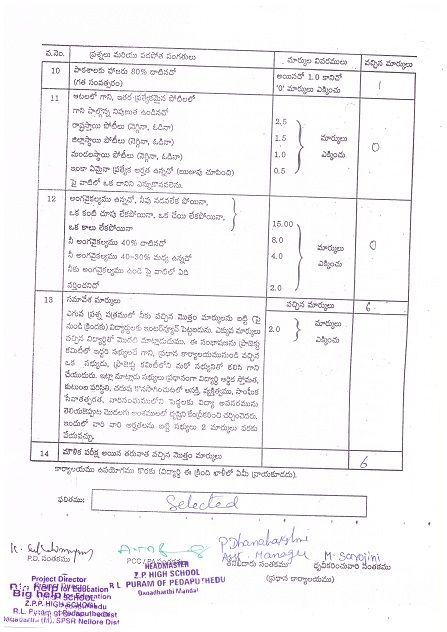 వ.నెం. ప్రశ్నలు మరియు వడపోత సంగతులు మార్కుల వివరములు వచ్చిన మార్కులు
10 పాఠశాలకు హాజరు 80% దాటినదో అయినచో 1.0 కానిచో 1
(గత సంవత్సరం) '0' మార్కులు ఎక్కించు
11 ఆటలలో గాని, ఇతర ప్రత్యేకమైన పోటీలలో
గాని పాల్గొన్న నిపుణత ఉండినచో
రాష్ట్రస్థాయి పోటీలు (నెగ్గినా, ఓడినా) 2.5
జిల్లాస్థాయి పోటీలు (నెగ్గినా, ఓడినా) 1.5 మార్కులు 0
మండలస్థాయి పోటీలు (నెగ్గినా, ఓడినా) 1.0 ఎక్కించు
ఇంకా ఏమైనా ప్రత్యేక అర్హత ఉన్నచో (ఋజువు చూపించి) 0.5
పై వాటిలో ఒక దానిని ఎన్నుకొనవలెను.
12 అంగవైకల్యము ఉన్నచో, నీవు నడవలేక పోయినా,
ఒక కంటి చూపు లేకపోయినా, ఒక చేయి లేకపోయినా,
ఒక కాలు లేకపోయినా 15.00
నీ అంగవైకల్యము 40% దాటినచో 8.0 మార్కులు 0
నీ అంగవైకల్యము 40-30% మధ్య ఉన్నచో 4.0 ఎక్కించు
నీకు అంగవైకల్యము ఉండి పై వాటిలో ఏది
వర్తించనిచో 2.0
13 సమావేశ మార్కులు వచ్చిన మార్కులు 6
ఎగువ ప్రశ్న పత్రములో నీకు వచ్చిన మొత్తం మార్కులను బట్టి (పై
నుండి క్రిందకు) విద్యార్థులకు ఇంటర్వ్యూవ్ పెట్టబడును. ఎక్కువ మార్కులు 2.0 మార్కులు
వచ్చిన విద్యార్థితో మొదట మాట్లాడుదుము. ఈ సంభాషణను ప్రాజెక్టు ఎక్కించు
కమిటీలో ఇద్దరి సభ్యులచే గాని, ప్రధాన కార్యాలయమునుండి వచ్చిన
ఒక సభ్యుడు, ప్రాజెక్టు కమిటీలోని మరో సభ్యునితో కలిసి గాని
చేయుదురు. ఇట్లా మాట్లాడు సభ్యులు ప్రధానంగా విద్యార్థి ఆర్థిక స్తోమత,
కుటుంబ పరిస్థితి, చదువు కొనసాగించుటలో ఆసక్తి, వ్యక్తిత్వము, సాంఘీక
ఇందులో వారి వారి అర్హతలను బట్టి సభ్యులు 2 మార్కులు వరకు
వేయవచ్చు.
14 మౌఖిక పరీక్ష అయిన తరువాత వచ్చిన మొత్తం మార్కులు 6
కార్యాలయము ఉపయోగము కొరకు (విద్యార్థి ఈ క్రింది ఖాళీలో ఏమీ వ్రాయకూడదు).
ఫలితము: Selected
P Dhanalakshmi
Asst. Manager M. Sarojini
P.D. సంతకము PCC / తనిఖీదారు సంతకము ధృవీకరించువారి సంతకము
(ప్రధాన కార్యాలయము)
HEADMASTER
Z.P. HIGH SCHOOL
R L PURAM OF PEDAPUTHEDU
Danadharthi Mandal
Project Director
Big Help for Education
Z.P.P. HIGH SCHOOL
R.L. Puram of Pedaputhedu
(M), SPSR Nellore Dist